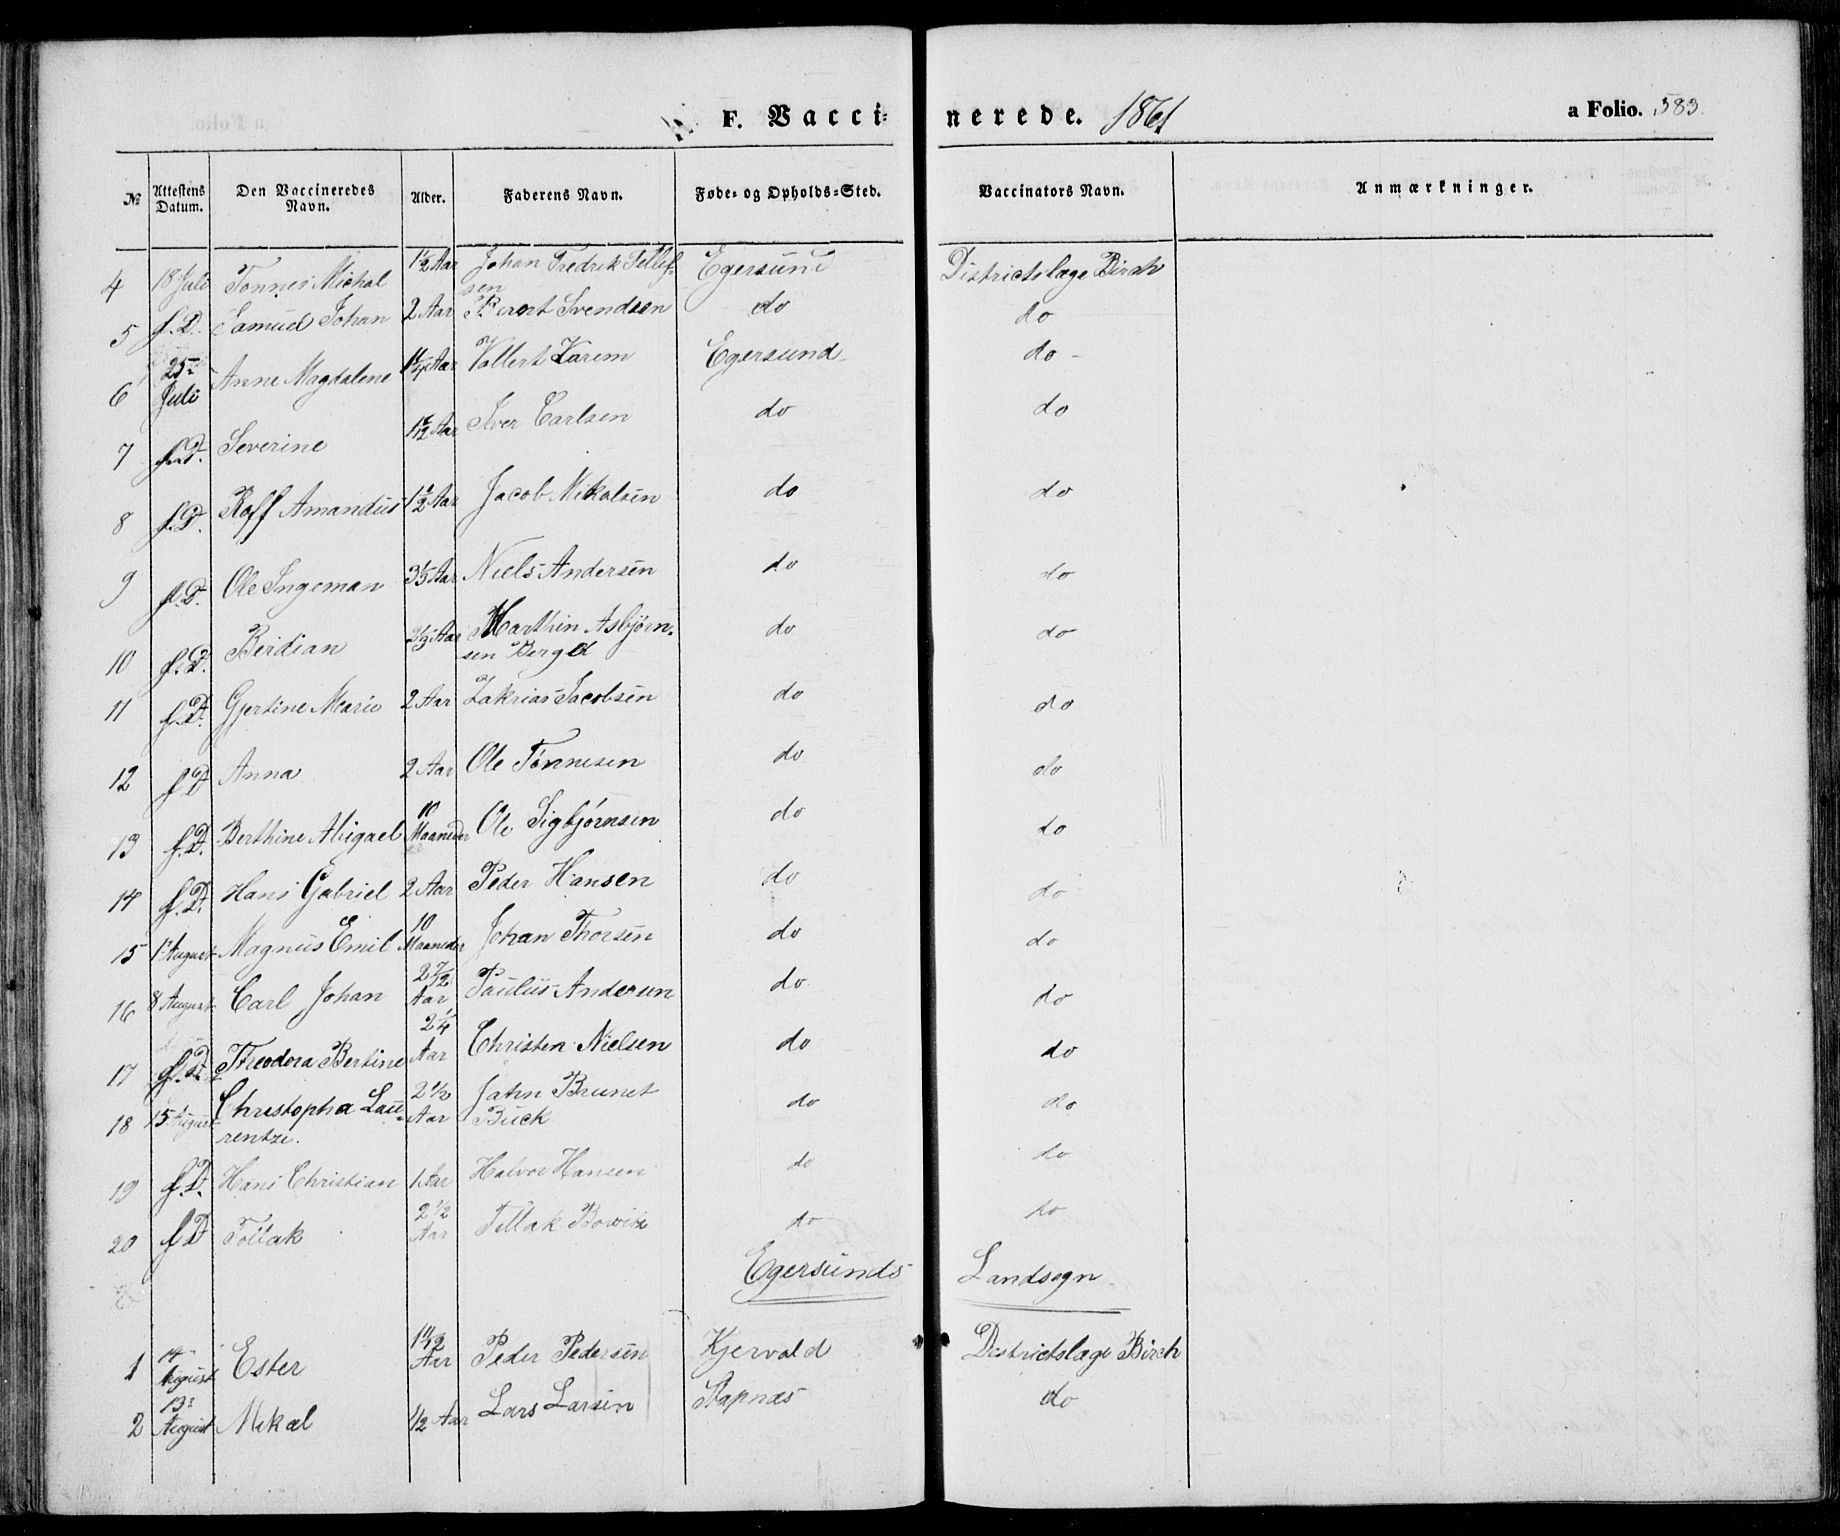 F. Vaccinerede. 1861 a Folio. 583.
№ Attestens Datum. Den Vaccineredes Navn. Alder. Faderens Navn. Føde- og Opholds-Sted. Vaccinators Navn. Anmærkninger.
4 18 Juli Tønnes Michal 1½ Aar Johan Fredrik Tellefsen Egersund Districtslæge Birch
5 f. D. Samuel Johan 2 Aar Berent Svendsen do do
6 25 Juli Anne Magdalene 1¼ Aar Vollert Karem Egersund do
7 f. D. Severine Aar Iver Carlsen do do
8 f. D. Roff Amandus 1½ Aar Jacob Mikalsen do do
9 f. D. Ole Ingeman Aar Niels Andersen do do
10 f. D. Beridian Aar Marthin Asbjørnsen Berg do do
11 f. D. Gjertine Marie 2 Aar Zakrias Jacobsen do do
12 f D Anna 2 Aar Ole Tønnesen do do
13 f. D. Berthine Abigael 10 Maaneder Ole Sigbjørnsen do do
14 f. D. Hans Gabriel 2 Aar Peder Hansen do do
15 1 August Magnus Emil 10 Maaneder Johan Thorsen do do
16 8 August Carl Johan Aar Paulus Andersen do do
17 f. D. Theodora Bertine 2¼ Aar Christen Nielsen do do
18 15 August Christopha Laurentze. 2½ Aar Jahn Brunet Buck do do
19 f. D. Hans Christian 1 Aar Halvor Hansen do do
20 f D Tollak 2½ Aar Tellak Bowitz do do
Egersunds Landsogn
1 14 August Ester Aar Peder Pedersen Kjervald Districtslæge Birch
2 13 August Mikal ½ Aar Lars Larsen Stapnæs do